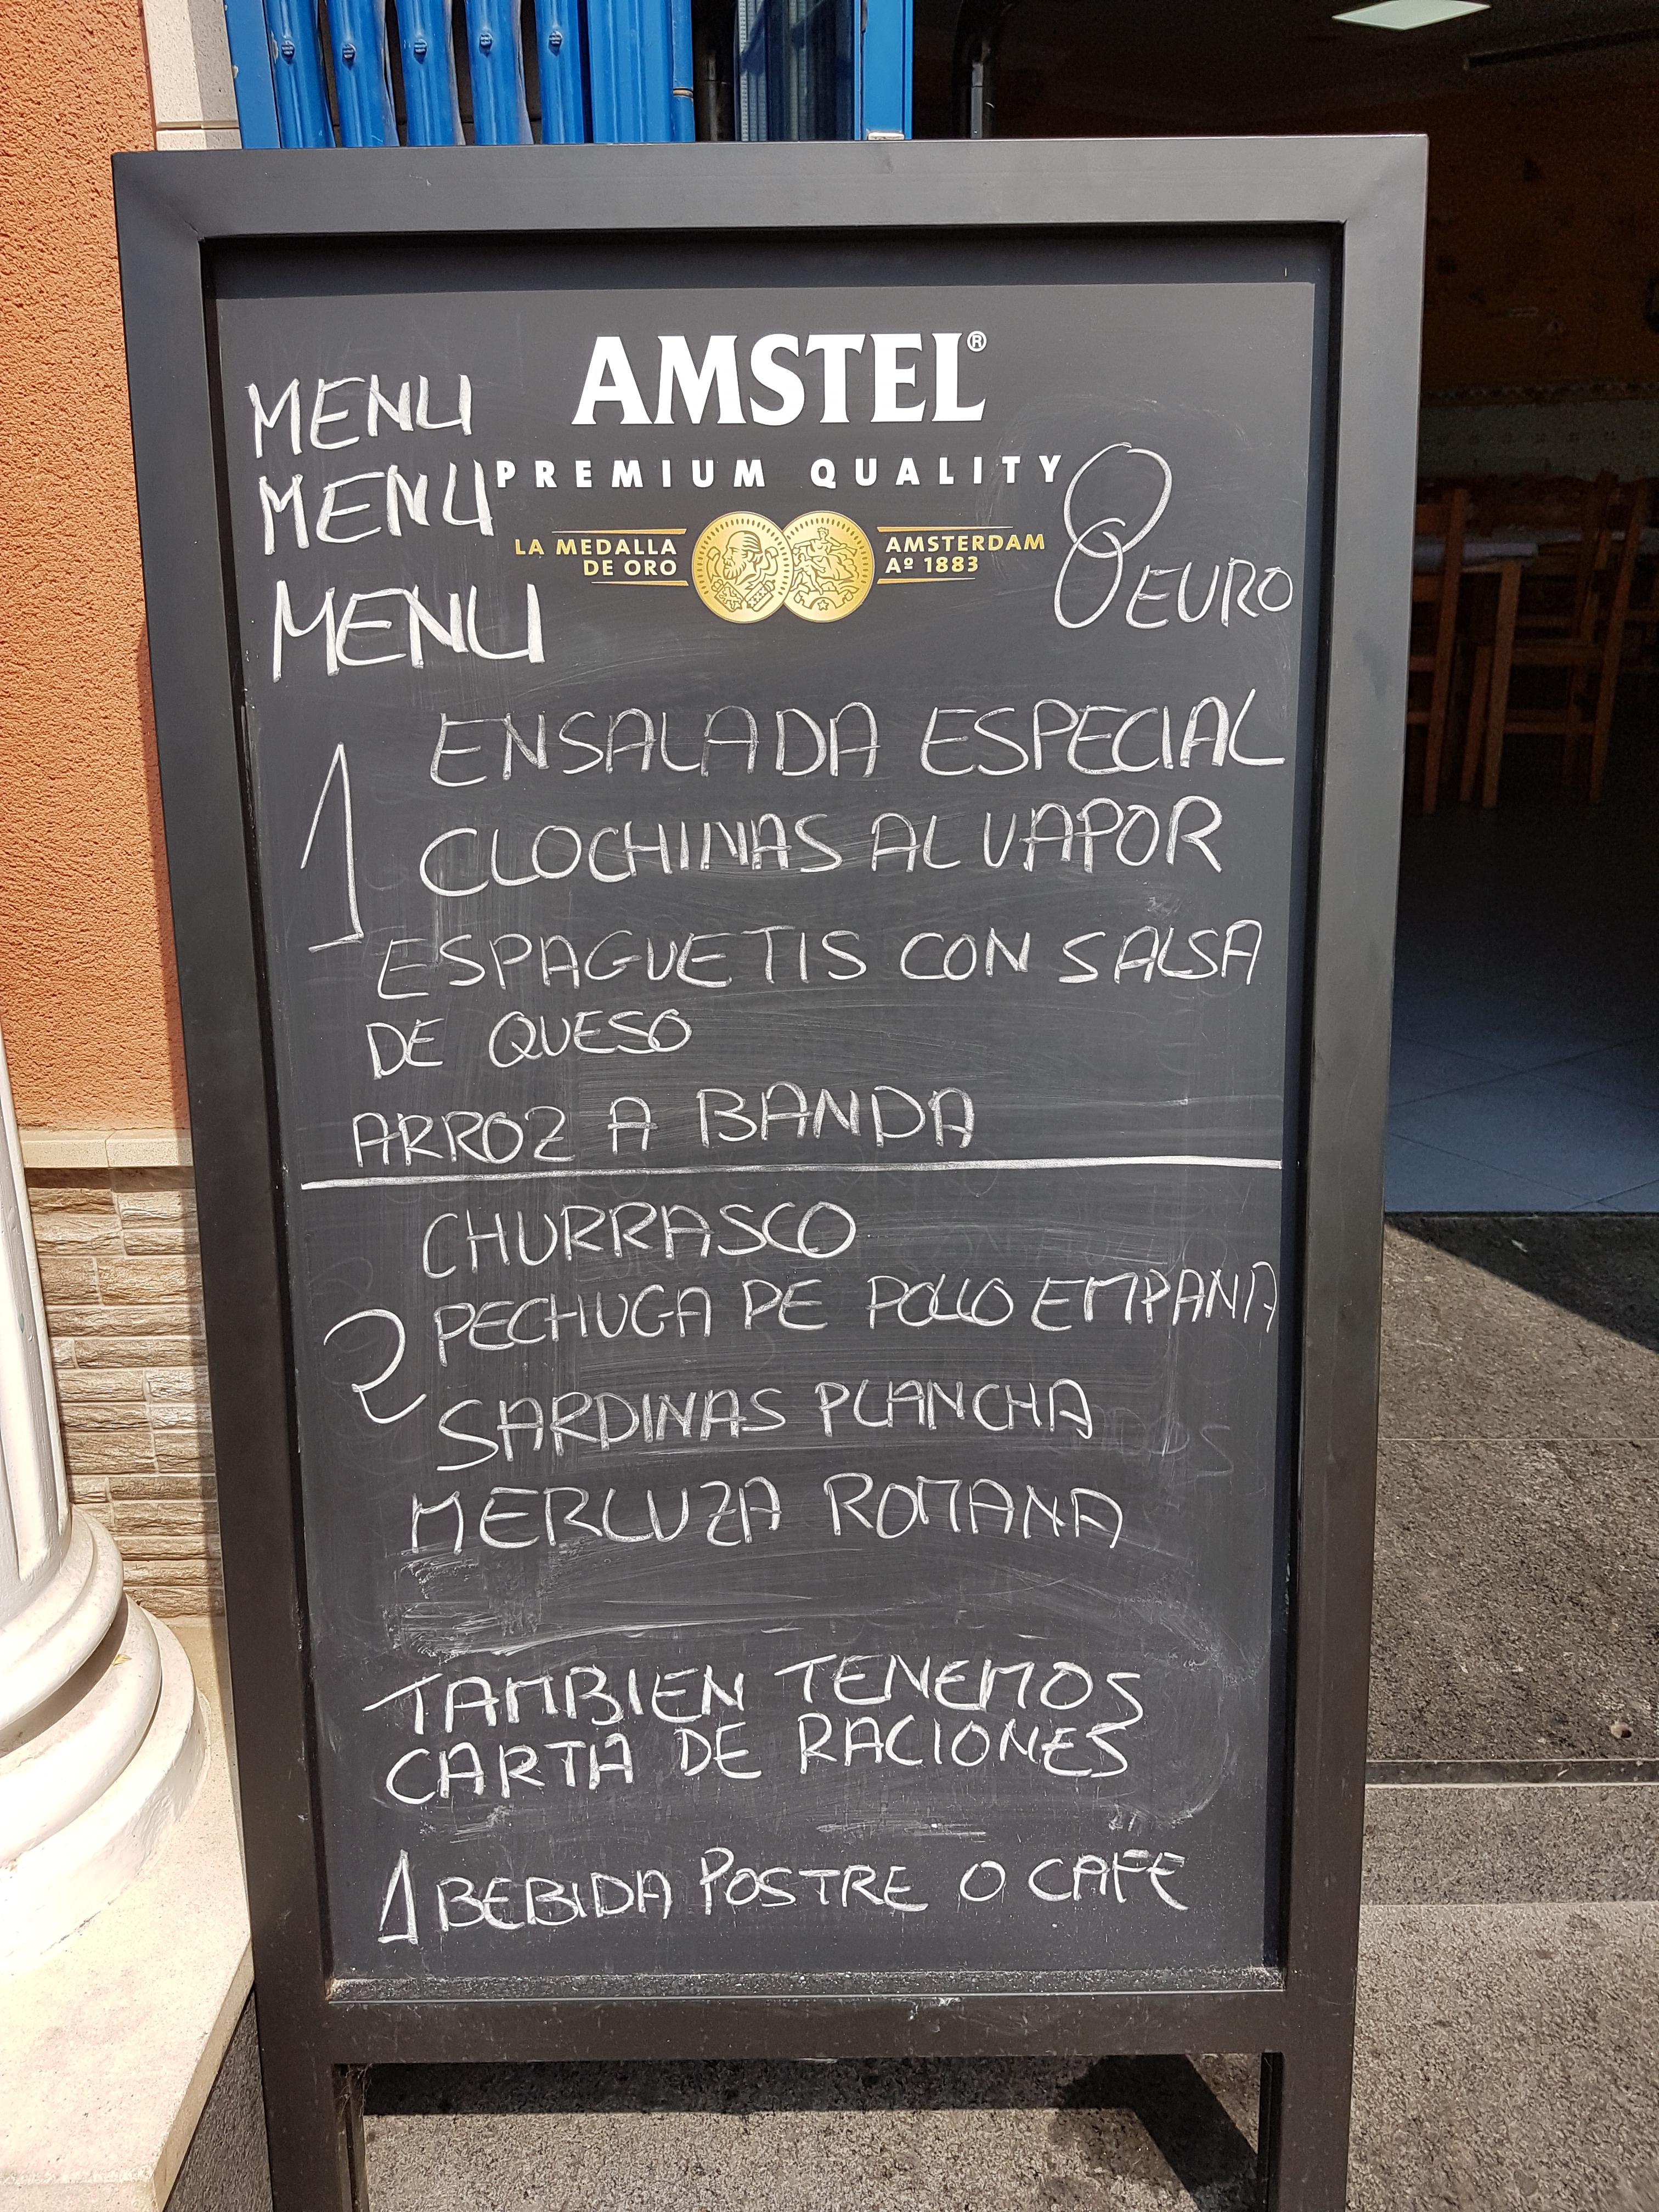 AMSTEL®
MENU
MENU
PREMIUM QUALITY
8 EURO
LA MEDALLA
DE ORO
AMSTERDAM
Aº 1883
MENU
1
ENSALADA ESPECIAL
CLOCHINAS AL VAPOR
ESPAGUETIS CON SALSA
DE QUESO
ARROZ A BANDA
2
CHURRASCO
PECHUGA DE POLLO EMPANA
SARDINAS PLANCHA
MERLUZA ROMANA
TAMBIEN TENEMOS
CARTA DE RACIONES
1 BEBIDA POSTRE O CAFE